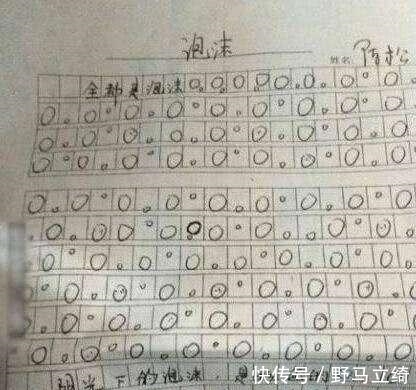 泡沫
姓名
全都是泡沫
阳光下的泡沫 是
快传号/野马立绮